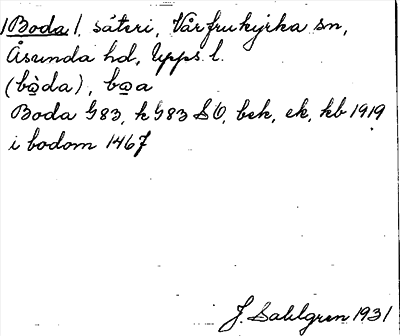 Boda, säteri, Vårfrukyrka sn,
Åsunda hd, Upps. l.
(bo̱da), bo̱a
Boda G83, k G83 SO, bek, ek, kb 1919
i bodom 1467
J. Sahlgren 1931